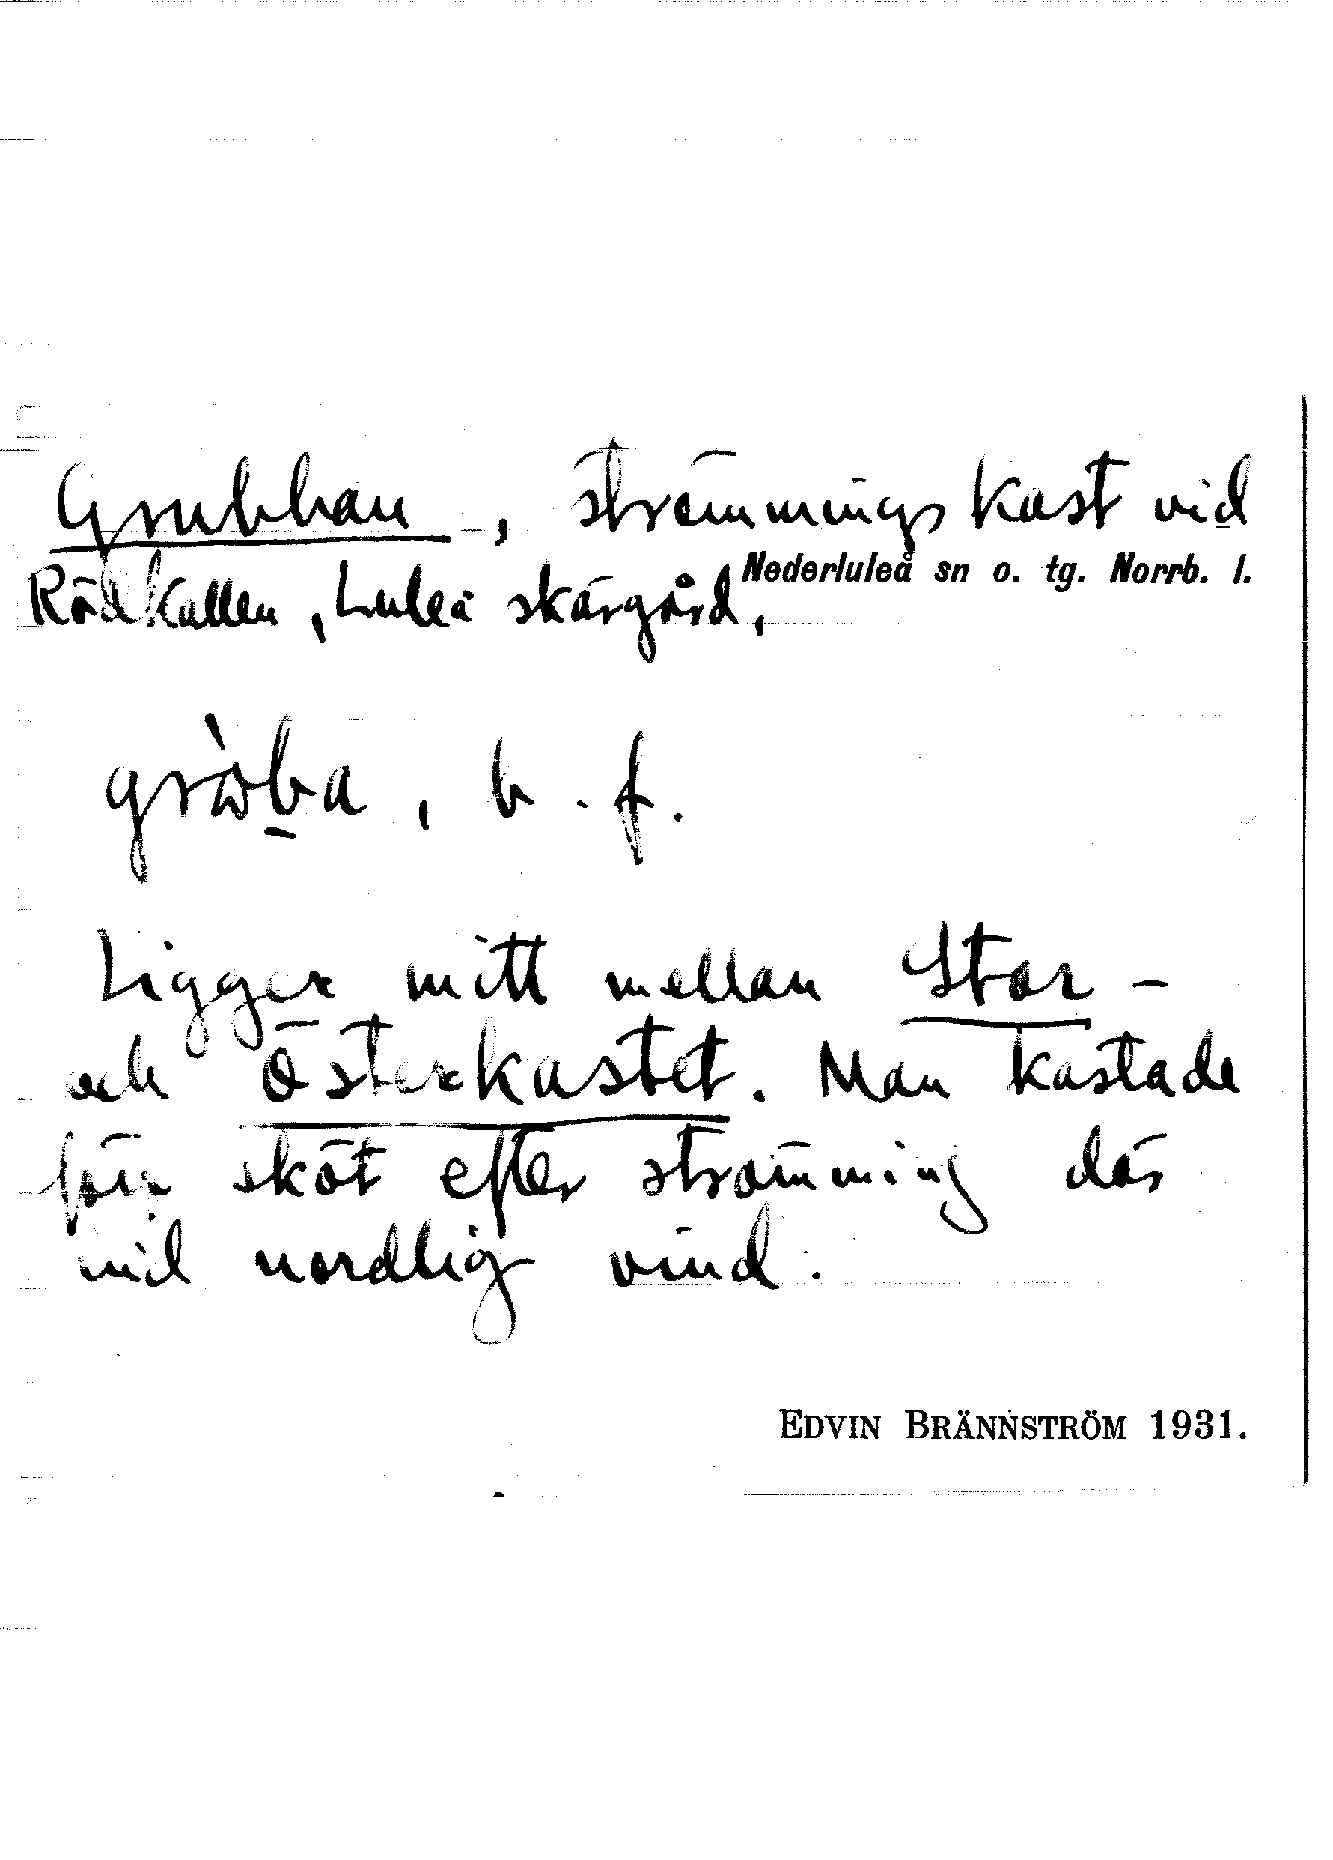 Grubban, strömmingskast vid
Nederluleå sn o. tg. Norrb. l.
Rödkallen, Luleå skärgård,
grὼba, b. f.
Ligger mitt mellan Stor-
och Österkastet. Man kastade
förr sköt efter strömming där
vid nordlig vind.
EDVIN BRÄNNSTRÖM 1931.